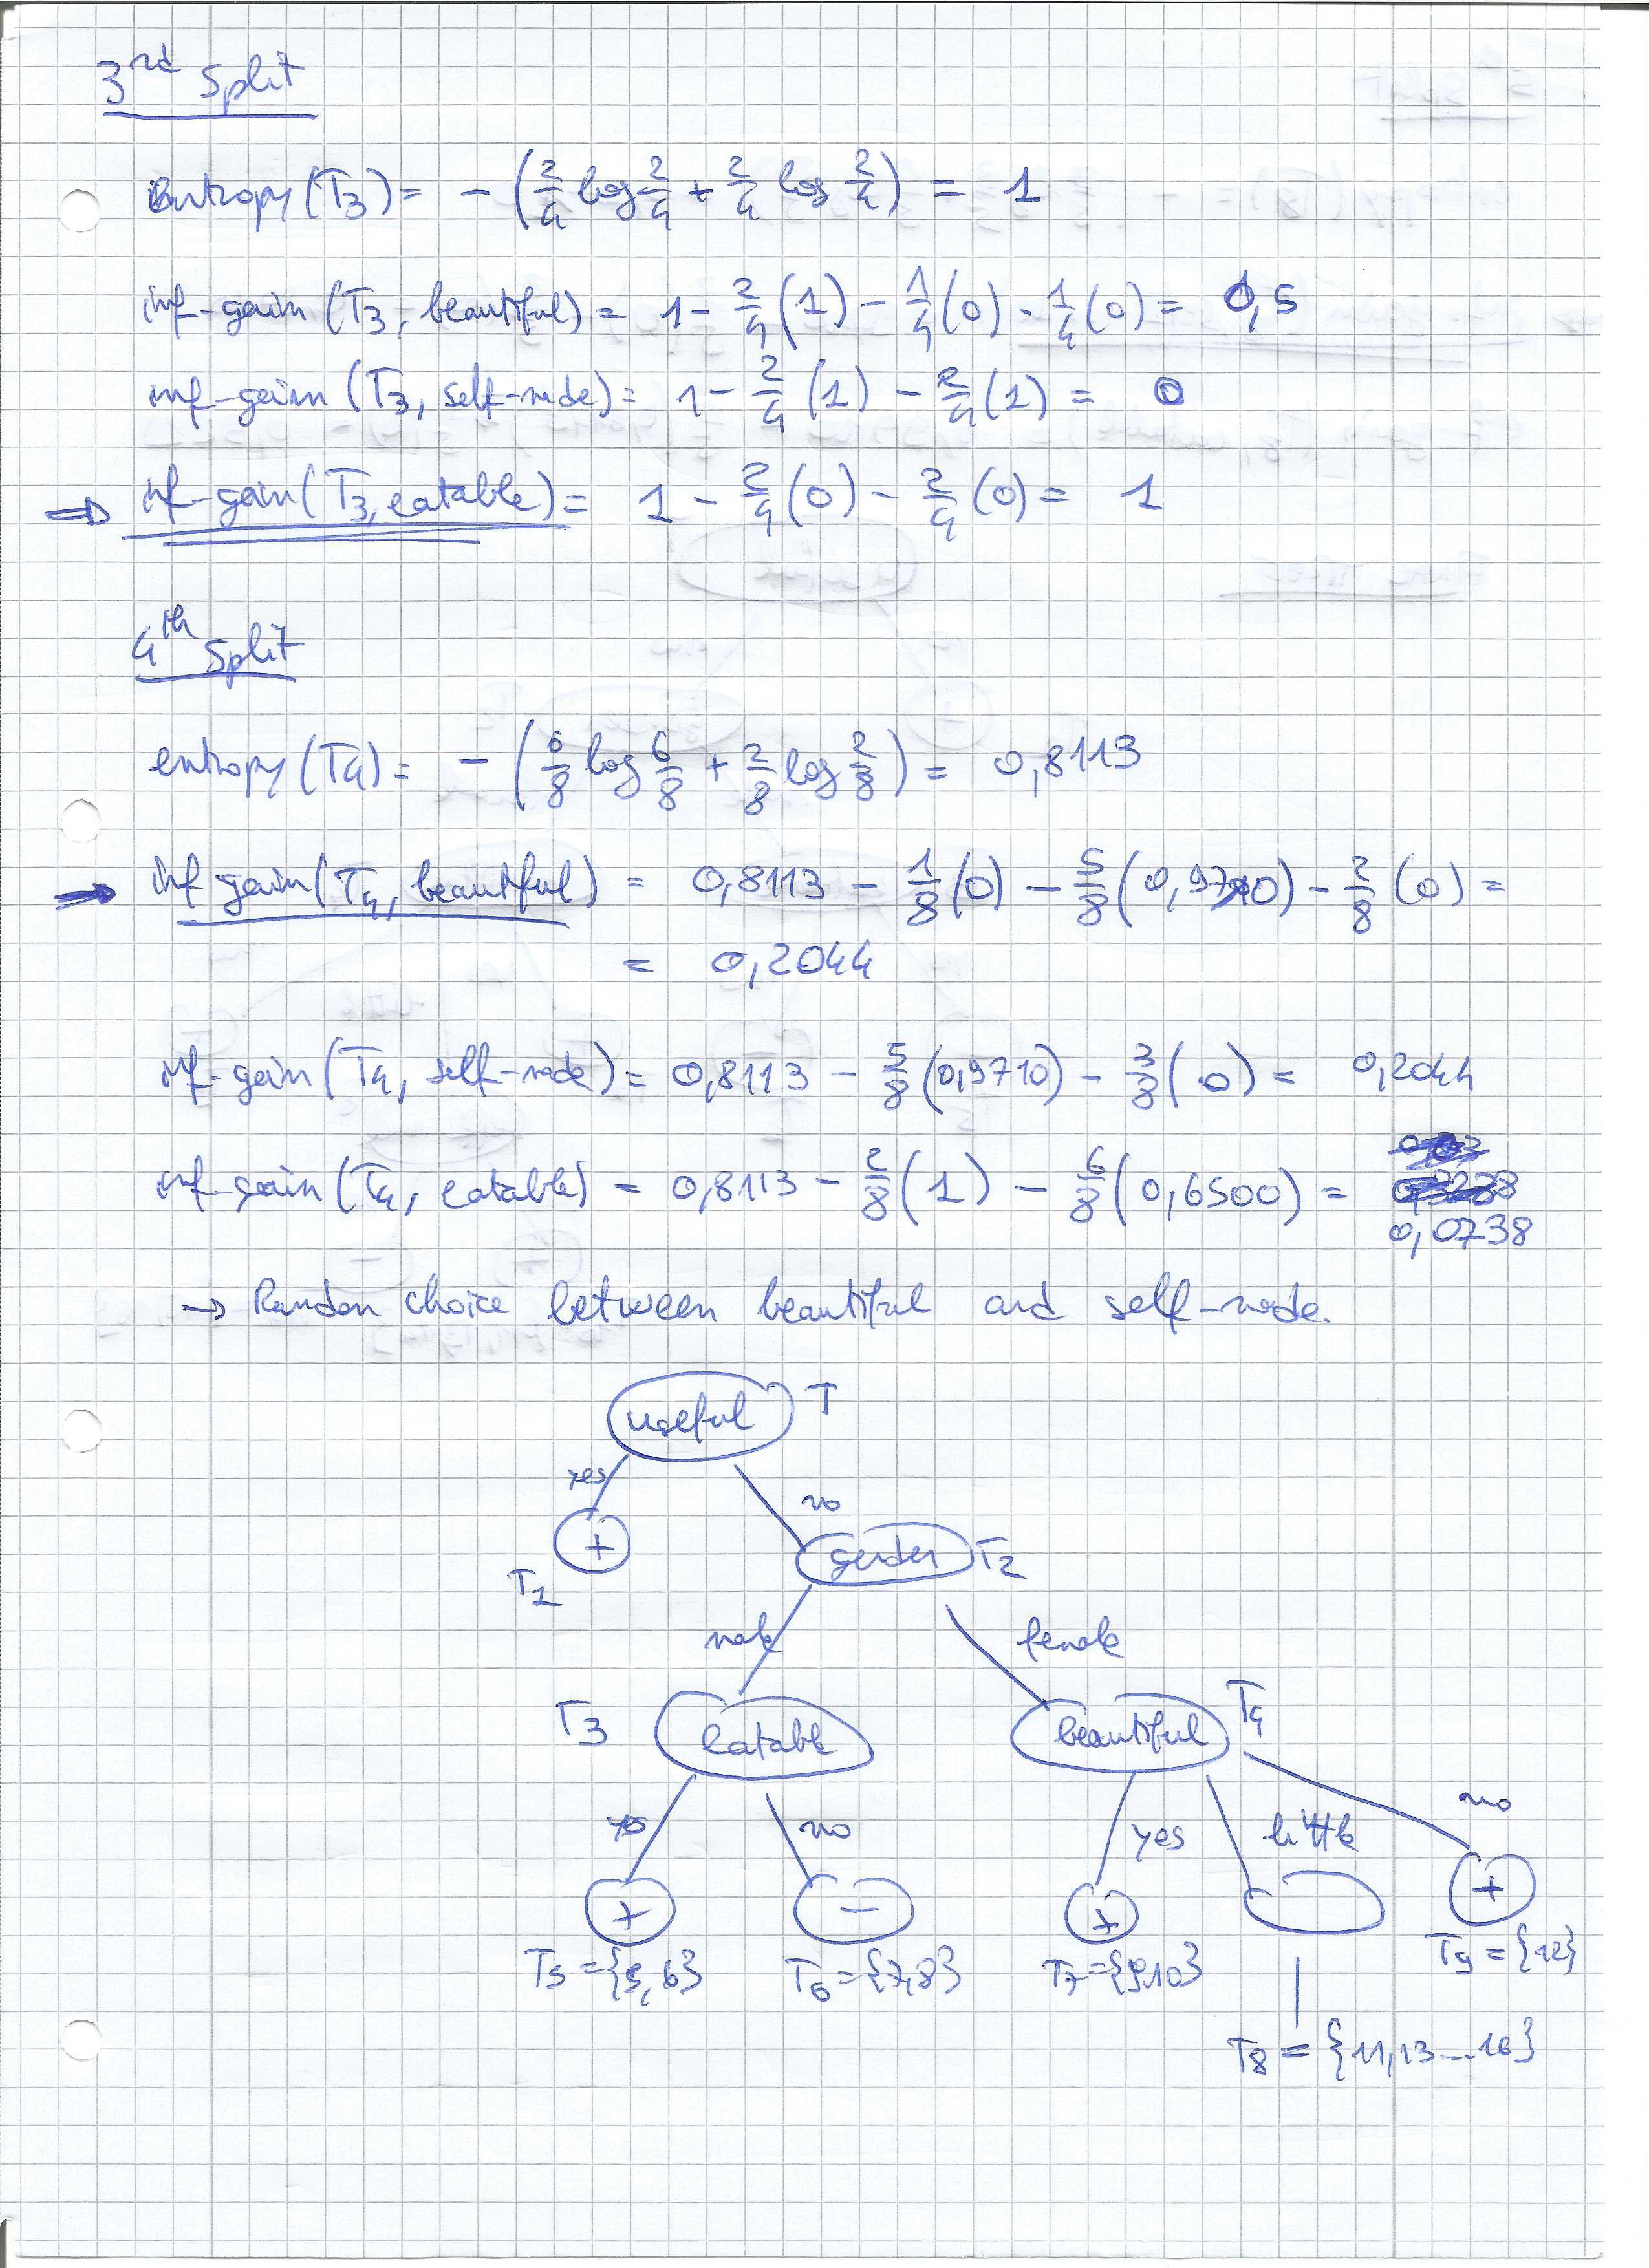 3rd Split
entropy(T3) = - (2/4 log 2/4 + 2/4 log 2/4) = 1
inf-gain (T3, beautiful) = 1 - 2/4(1) - 1/4(0) - 1/4(0) = 0,5
inf-gain (T3, self-made) = 1 - 2/4 (1) - 2/4(1) = 0
⇒ inf-gain(T3, eatable) = 1 - 2/4(0) - 2/4(0) = 1
4th Split
entropy(T4) = - (6/8 log 6/8 + 2/8 log 2/8) = 0,8113
→ inf gain(T4, beautiful) = 0,8113 - 1/8(0) - 5/8(0,9710) - 2/8(0) =
= 0,2044
inf-gain(T4, self-made) = 0,8113 - 5/8(0,9710) - 3/8(0) = 0,2044
inf-gain(T4, eatable) = 0,8113 - 2/8(1) - 6/8(0,6500) = 0,0738
→ Random choice between beautiful and self-made.
useful T
yes no
+ gender T2
T1
male female
T3 eatable beautiful T4
yes no yes little no
+ - + +
T5 = {5,6} T6 = {7,8} T7 = {9,10} T9 = {12}
T8 = {11,13...16}